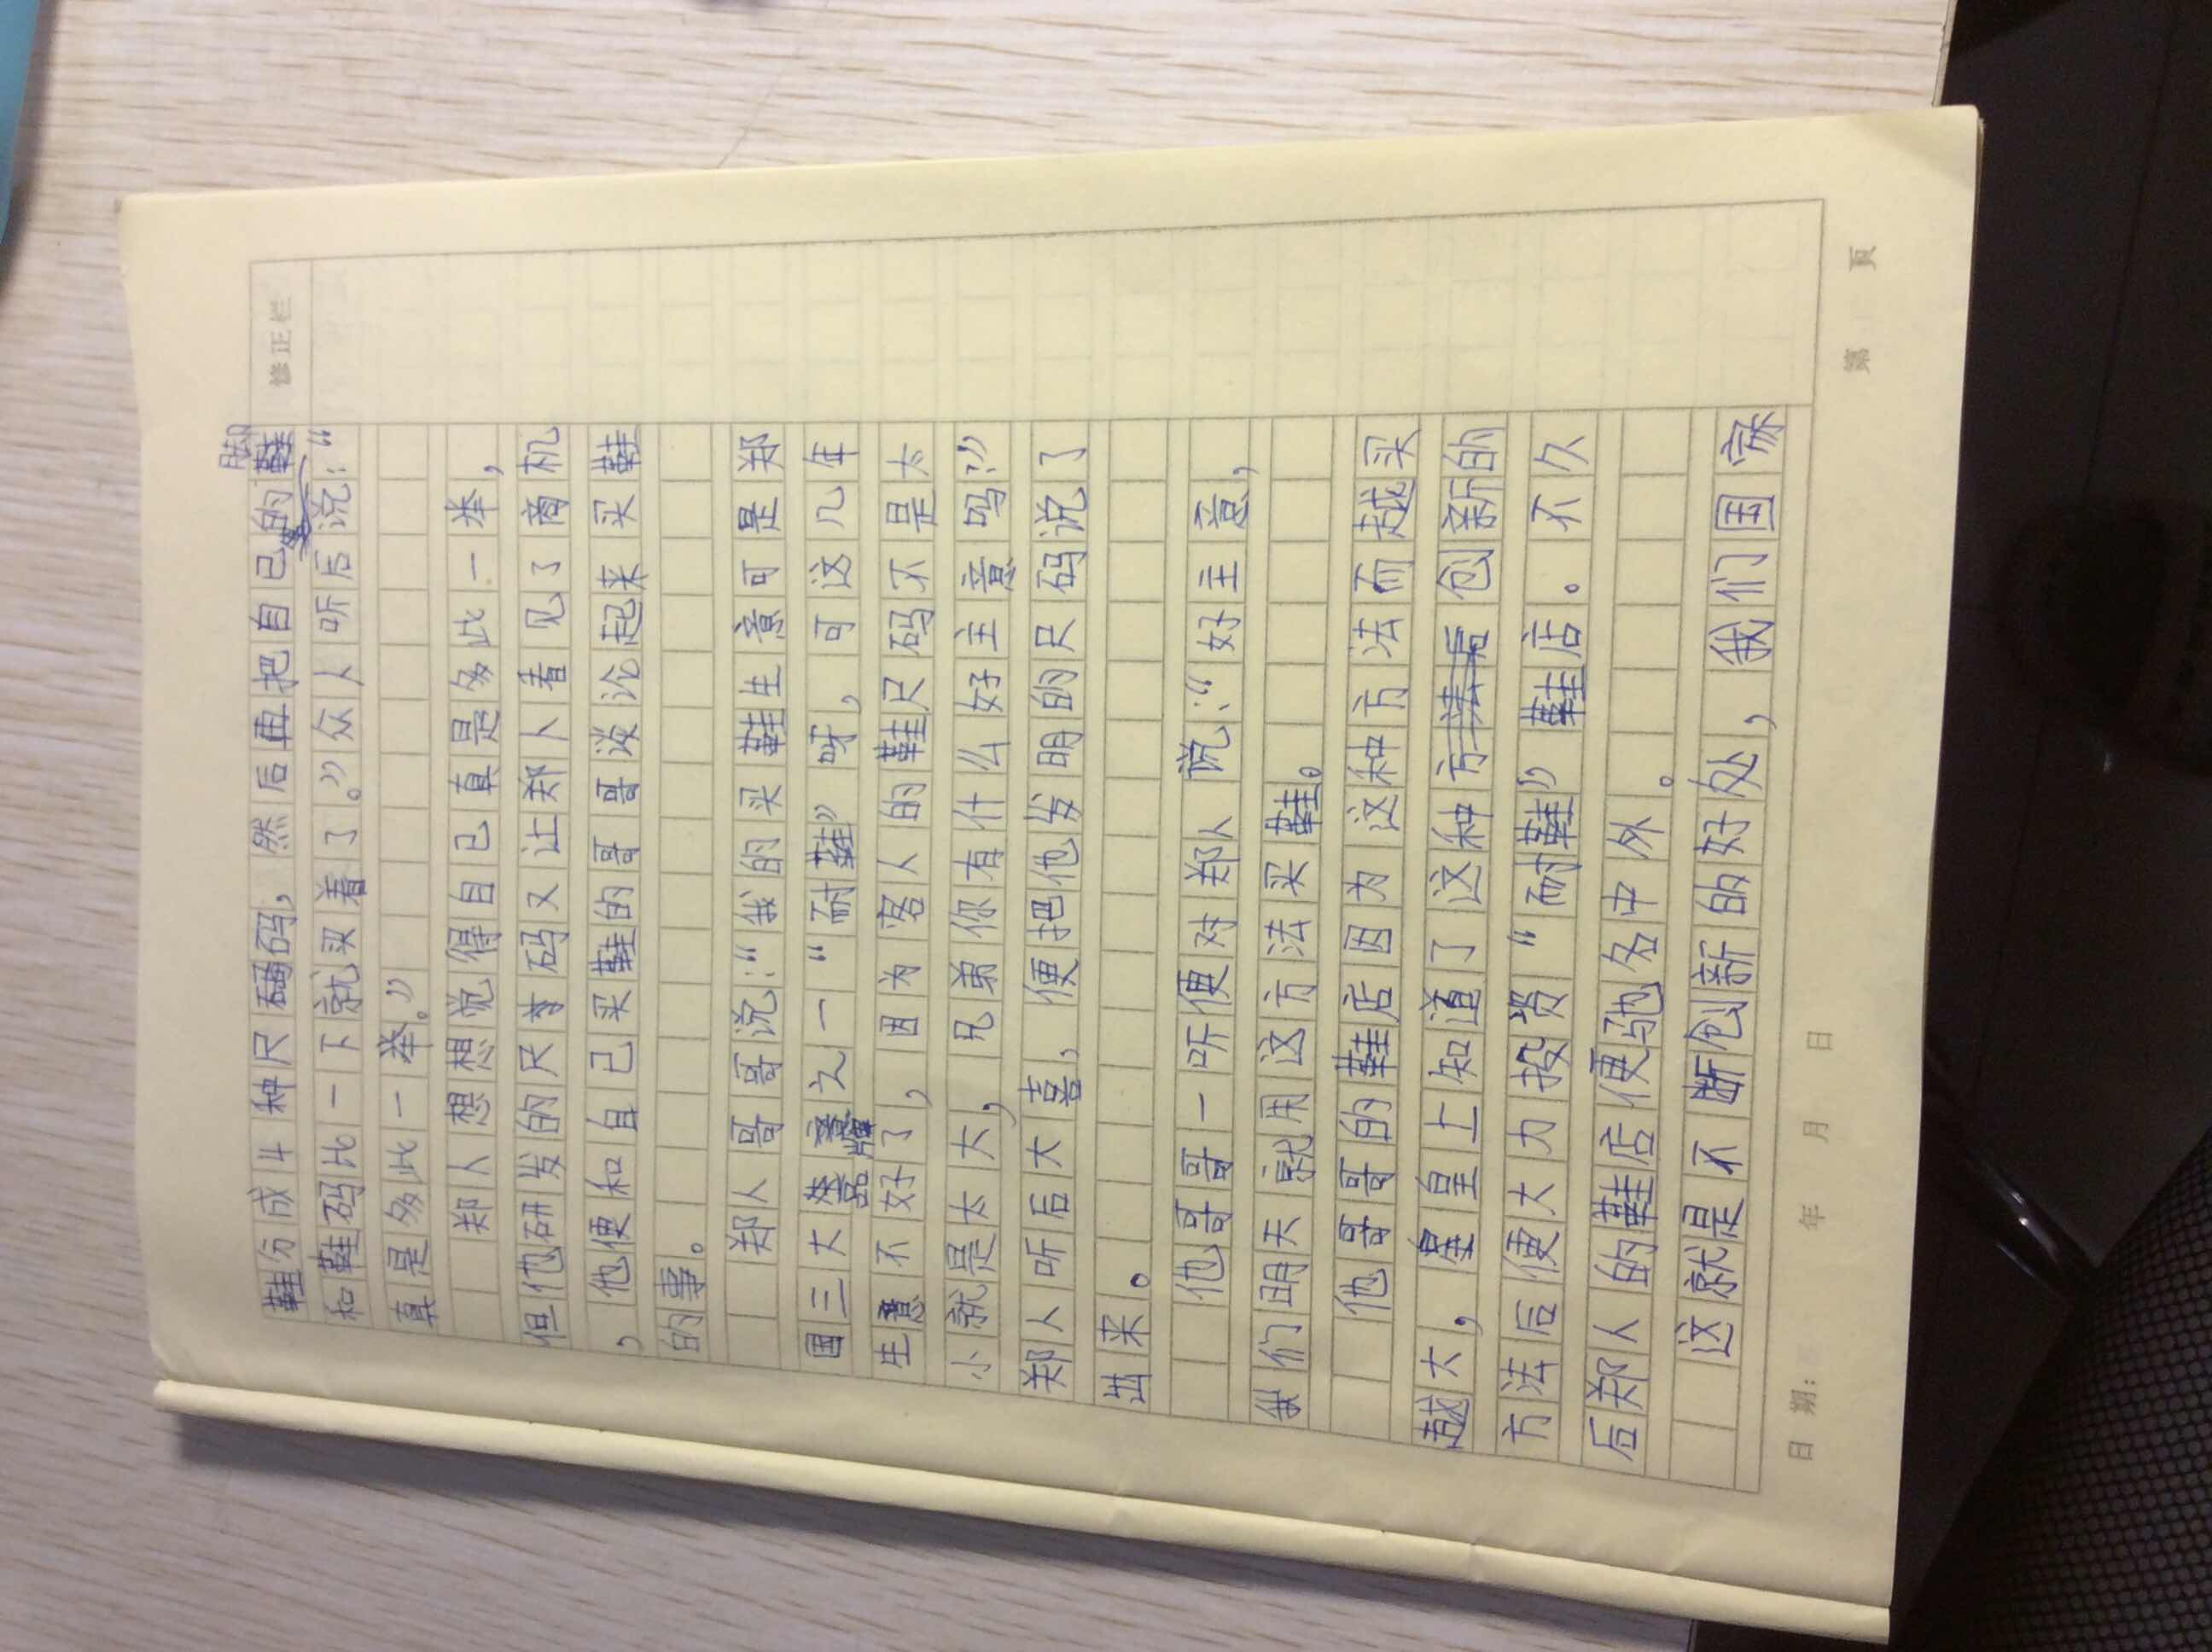 修正栏
脚
鞋分成4种尺码，然后再把自己的鞋
和鞋码比一下就买着了。”众人听后说：“
真是多此一举。”
郑人想想觉得自己真是多此一举，
但他研发的尺码又让郑人看见了商机
，他便和自己买鞋的哥哥谈论起来买鞋
的事。
郑人哥哥说：“我的买鞋生意可是郑
国三大品牌之一“耐鞋”呀，可这几年
生意不好了，因为客人的鞋尺码不是太
小就是太大，兄弟你有什么好主意吗？”
郑人听后大喜，便把他发明的尺码说了
出来。
他哥哥一听便对郑人说：“好主意，
我们明天就用这方法买鞋。
他哥哥的鞋店因为这种方法而越买
越大，皇上知道了这种方法后创新的
方法后便大力投资“耐鞋”鞋店。不久
后郑人的鞋店便驰名中外。
这就是不断创新的好处，我们国家
日期： 年 月 日
第 页